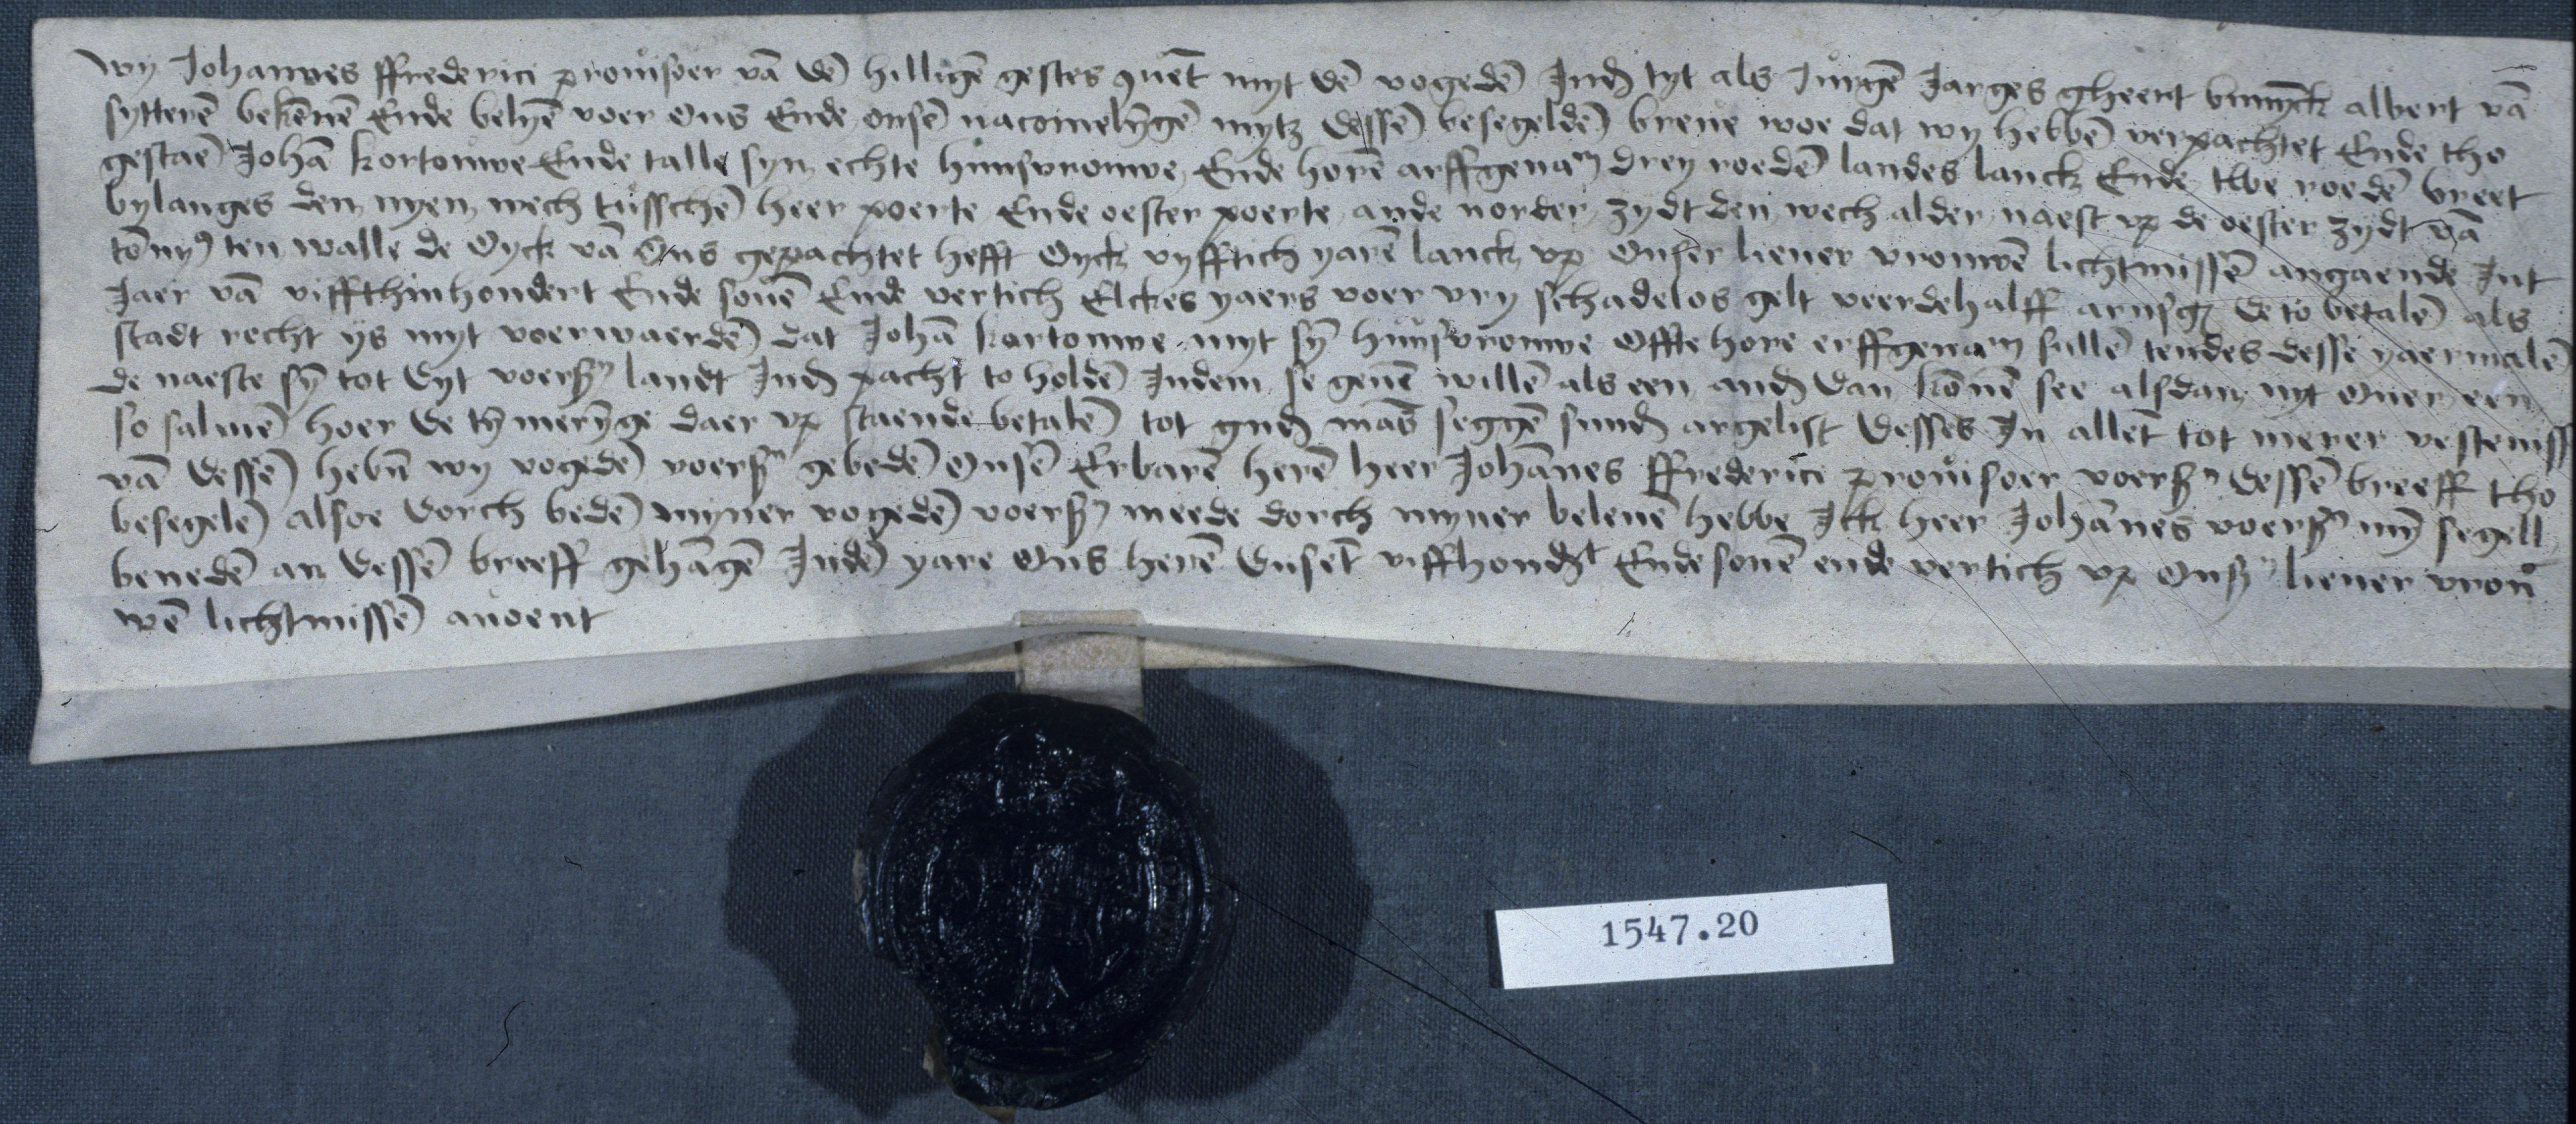 wy Johannes ffrederici provisoer vā dē hilligē gestes convēt myt dē vogedē Ind tyt als Jurgē Jarges gheert buninck albert vā
sytterē bekēnē Ende belyē voer ons Ende onsē nacomelīgē mytz dessē besegeldē breve woe dat wy hebbē verpachtet Ende tho
gestaē Johā kortouwe Ende talle syn echte huusvrouwe Ende horē arffgenam drey roedē landes lanck Ende twe roedē breet
bylanges den nyen wech tusschē heer poerte Ende oester poerte ande norder zydt den wech alder naest vp de oester zydt vā
tōnys ten walle de Oyck vā Ons gepachtet hefft Oyck vyfftich yarē lanck vp Onser liever vrouwē lichtmissē angaende Int
Jaer vā viffthinhondert Ende sovē Ende vertich Elckes yaers voer vry schadelos gelt veerdehalff arnsg de to betalē als
stadt recht ys myt voerwaerdē dat Johā kortouwe myt sȳ huusvrouwe Offte hore erffgenam sullē tendes desse yaermalē
de naeste sȳ tot Dyt voers landt Ind pacht to holdē Indem se gevē willē als een and dan kōnē see alsdan nyt Over een
so salmē hoer de tȳmerȳge daer vp staende betalē tot gud mās seggē sund argelist Desses In allēt tot merer vesteniss
vā dessē hebn wy vogedē voers gebedē Onsē Erbarē herē heer Johānes ffrederici provisoer voers dessē breeff tho
besegelē alsoe dorch bedē myner vogedē voers meede dorch myner belevē hebbe Ick heer Johānes voers mȳ segell
benedē an dessē breeff gehāgē Indē yare Ons herē Dusēt viffhondt Ende sovē ende vertich vp Ons liever vrou
wē lichtmissē avoent
1547.20